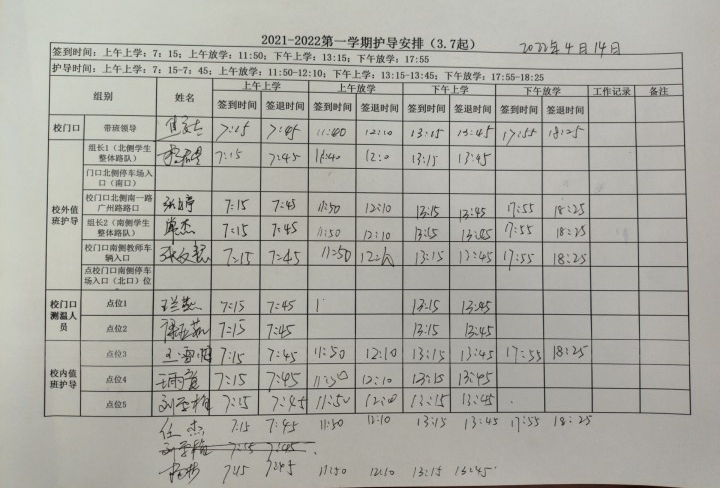 2021-2022第一学期护导安排（3.7起） 2022年4月14日
签到时间：上午上学：7：15；上午放学：11:50；下午上学：13:15；下午放学：17:55
护导时间：上午上学：7：15-7：45；上午放学：11:50-12:10；下午上学：13:15-13:45；下午放学：17:55-18:25
组别 姓名 上午上学 上午放学 下午上学 下午放学 工作记录 备注
签到时间 签退时间 签到时间 签退时间 签到时间 签退时间 签到时间 签退时间
校门口 带班领导 7:15 7:45 11:40 12:10 13:15 13:45 17:55 18:25
校外值班护导
组长1（北侧学生整体路队） 7:15 7:45 11:40 12:0 13:15 13:45
门口北侧停车场入口（南口）
校门口北侧南一路广州路路口 7:15 7:45 11:50 12:10 13:15 13:45 17:55 18:25
组长2（南侧学生整体路队） 杰 7:15 7:45 11:50 12:10 13:15 13:45 17:55 18:25
校门口南侧教师车辆入口 张文慧 7:15 7:45 11:50 13:15 13:45 17:55 18:25
点校门口南侧停车场入口（北口）位
校门口测温人员
点位1 王兰 7:15 7:45 1 13:15 13:45
点位2 7:15 7:45 13:15 13:45
校内值班护导
点位3 王雪 7:15 7:45 11:50 12:10 13:15 13:45 17:55 18:25
点位4 7:15 7:45 11:50 12:10 13:15 13:45
点位5 刘学梅 7:15 7:45 11:50 12:10 13:15 13:45
任杰 7:15 7:45 11:50 12:10 13:15 13:45 17:55 18:25
刘学梅 7:15 7:45
杨 7:15 7:45 11:50 12:10 13:15 13:45